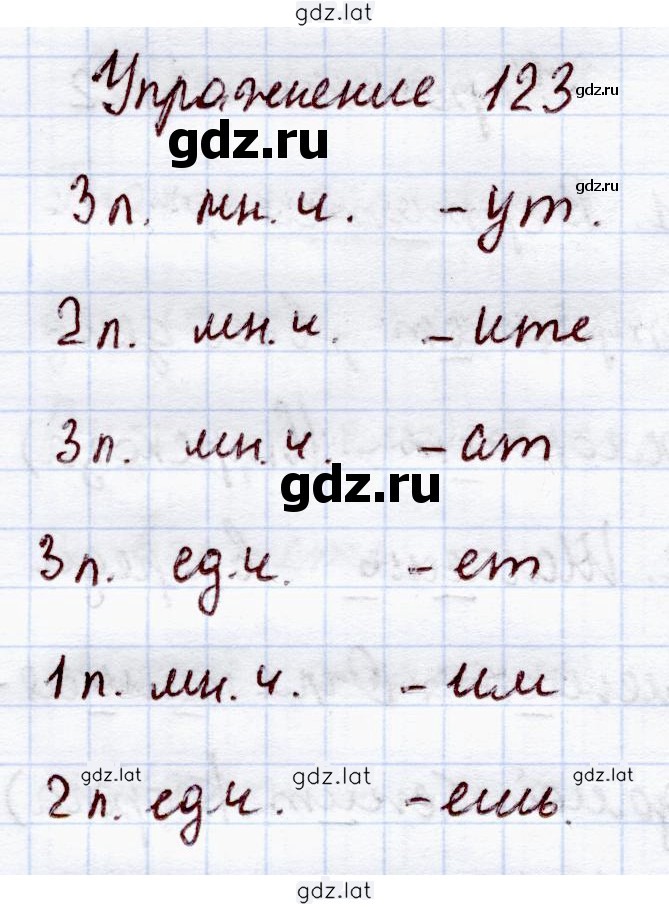 gdz.lat
Упражнение 123
gdz.ru
gdz.ru
3 л. мн. ч. -ут.
gdz.ru
2 л. мн. ч. -ите
3 л. мн. ч. -ат
gdz.ru
3 л. ед. ч. -ет
1 л. мн. ч. -им
gdz.lat gdz.lat gdz.lat
2 л. ед. ч. -ешь.
gdz.lat